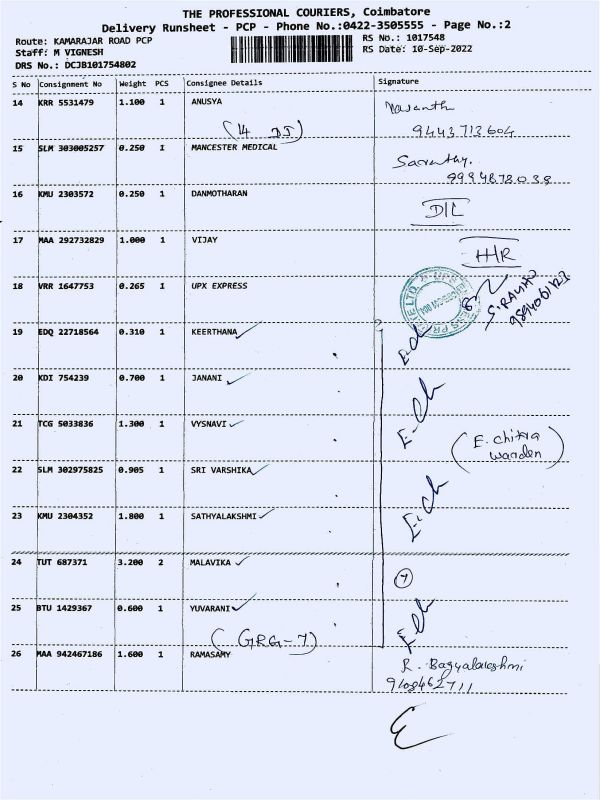 THE PROFESSIONAL COURIERS, Coimbatore
Delivery Runsheet - PCP - Phone No.:0422-3505555 - Page No.:2
Route: KAMARAJAR ROAD PCP
RS No.: 1017548
Staff: M VIGNESH
RS Date: 10-Sep-2022
DRS No.: DCJB101754802
S No Consignment No Weight PCS Consignee Details Signature
14 KRR 5531479 1.100 1 ANUSYA
9443713604
15 SLM 303005257 0.250 1 MANCESTER MEDICAL
Saranthy.
9994873038
16 KMU 2303572 0.250 1 DANMOTHARAN
D/L
17 MAA 292732829 1.000 1 VIJAY
HHR
18 VRR 1647753 0.265 1 UPX EXPRESS
19 EDQ 22718564 0.310 1 KEERTHANA
E-ch
20 KDI 754239 0.700 1 JANANI
E-Ch
21 TCG 5033836 1.300 1 VYSNAVI
(E. chitra
warden)
22 SLM 302975825 0.905 1 SRI VARSHIKA
E-ch
23 KMU 2304352 1.800 1 SATHYALAKSHMI
24 TUT 687371 3.200 2 MALAVIKA
7
25 BTU 1429367 0.600 1 YUVARANI
E ch
(GRG-7)
26 MAA 942467186 1.600 1 RAMASAMY
R. Bagyalakshmi